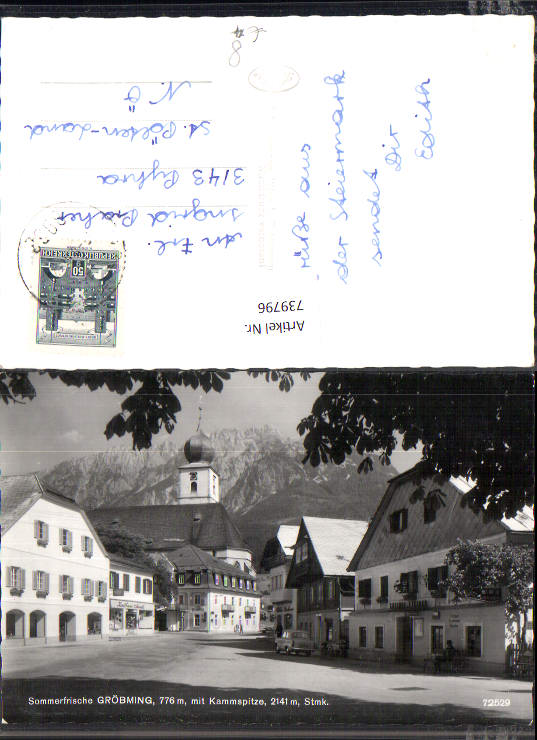 48
Grüße aus
der Steiermark
sendet Dir
Edith
REPUBLIK ÖSTERREICH
50
An Frl.
Ingrid
3143 Pyhra
St. Pölten-Land
N. Ö
Artikel Nr.
739796
Sommerfrische GRÖBMING, 776 m, mit Kammspitze, 2141 m, Stmk.
72529